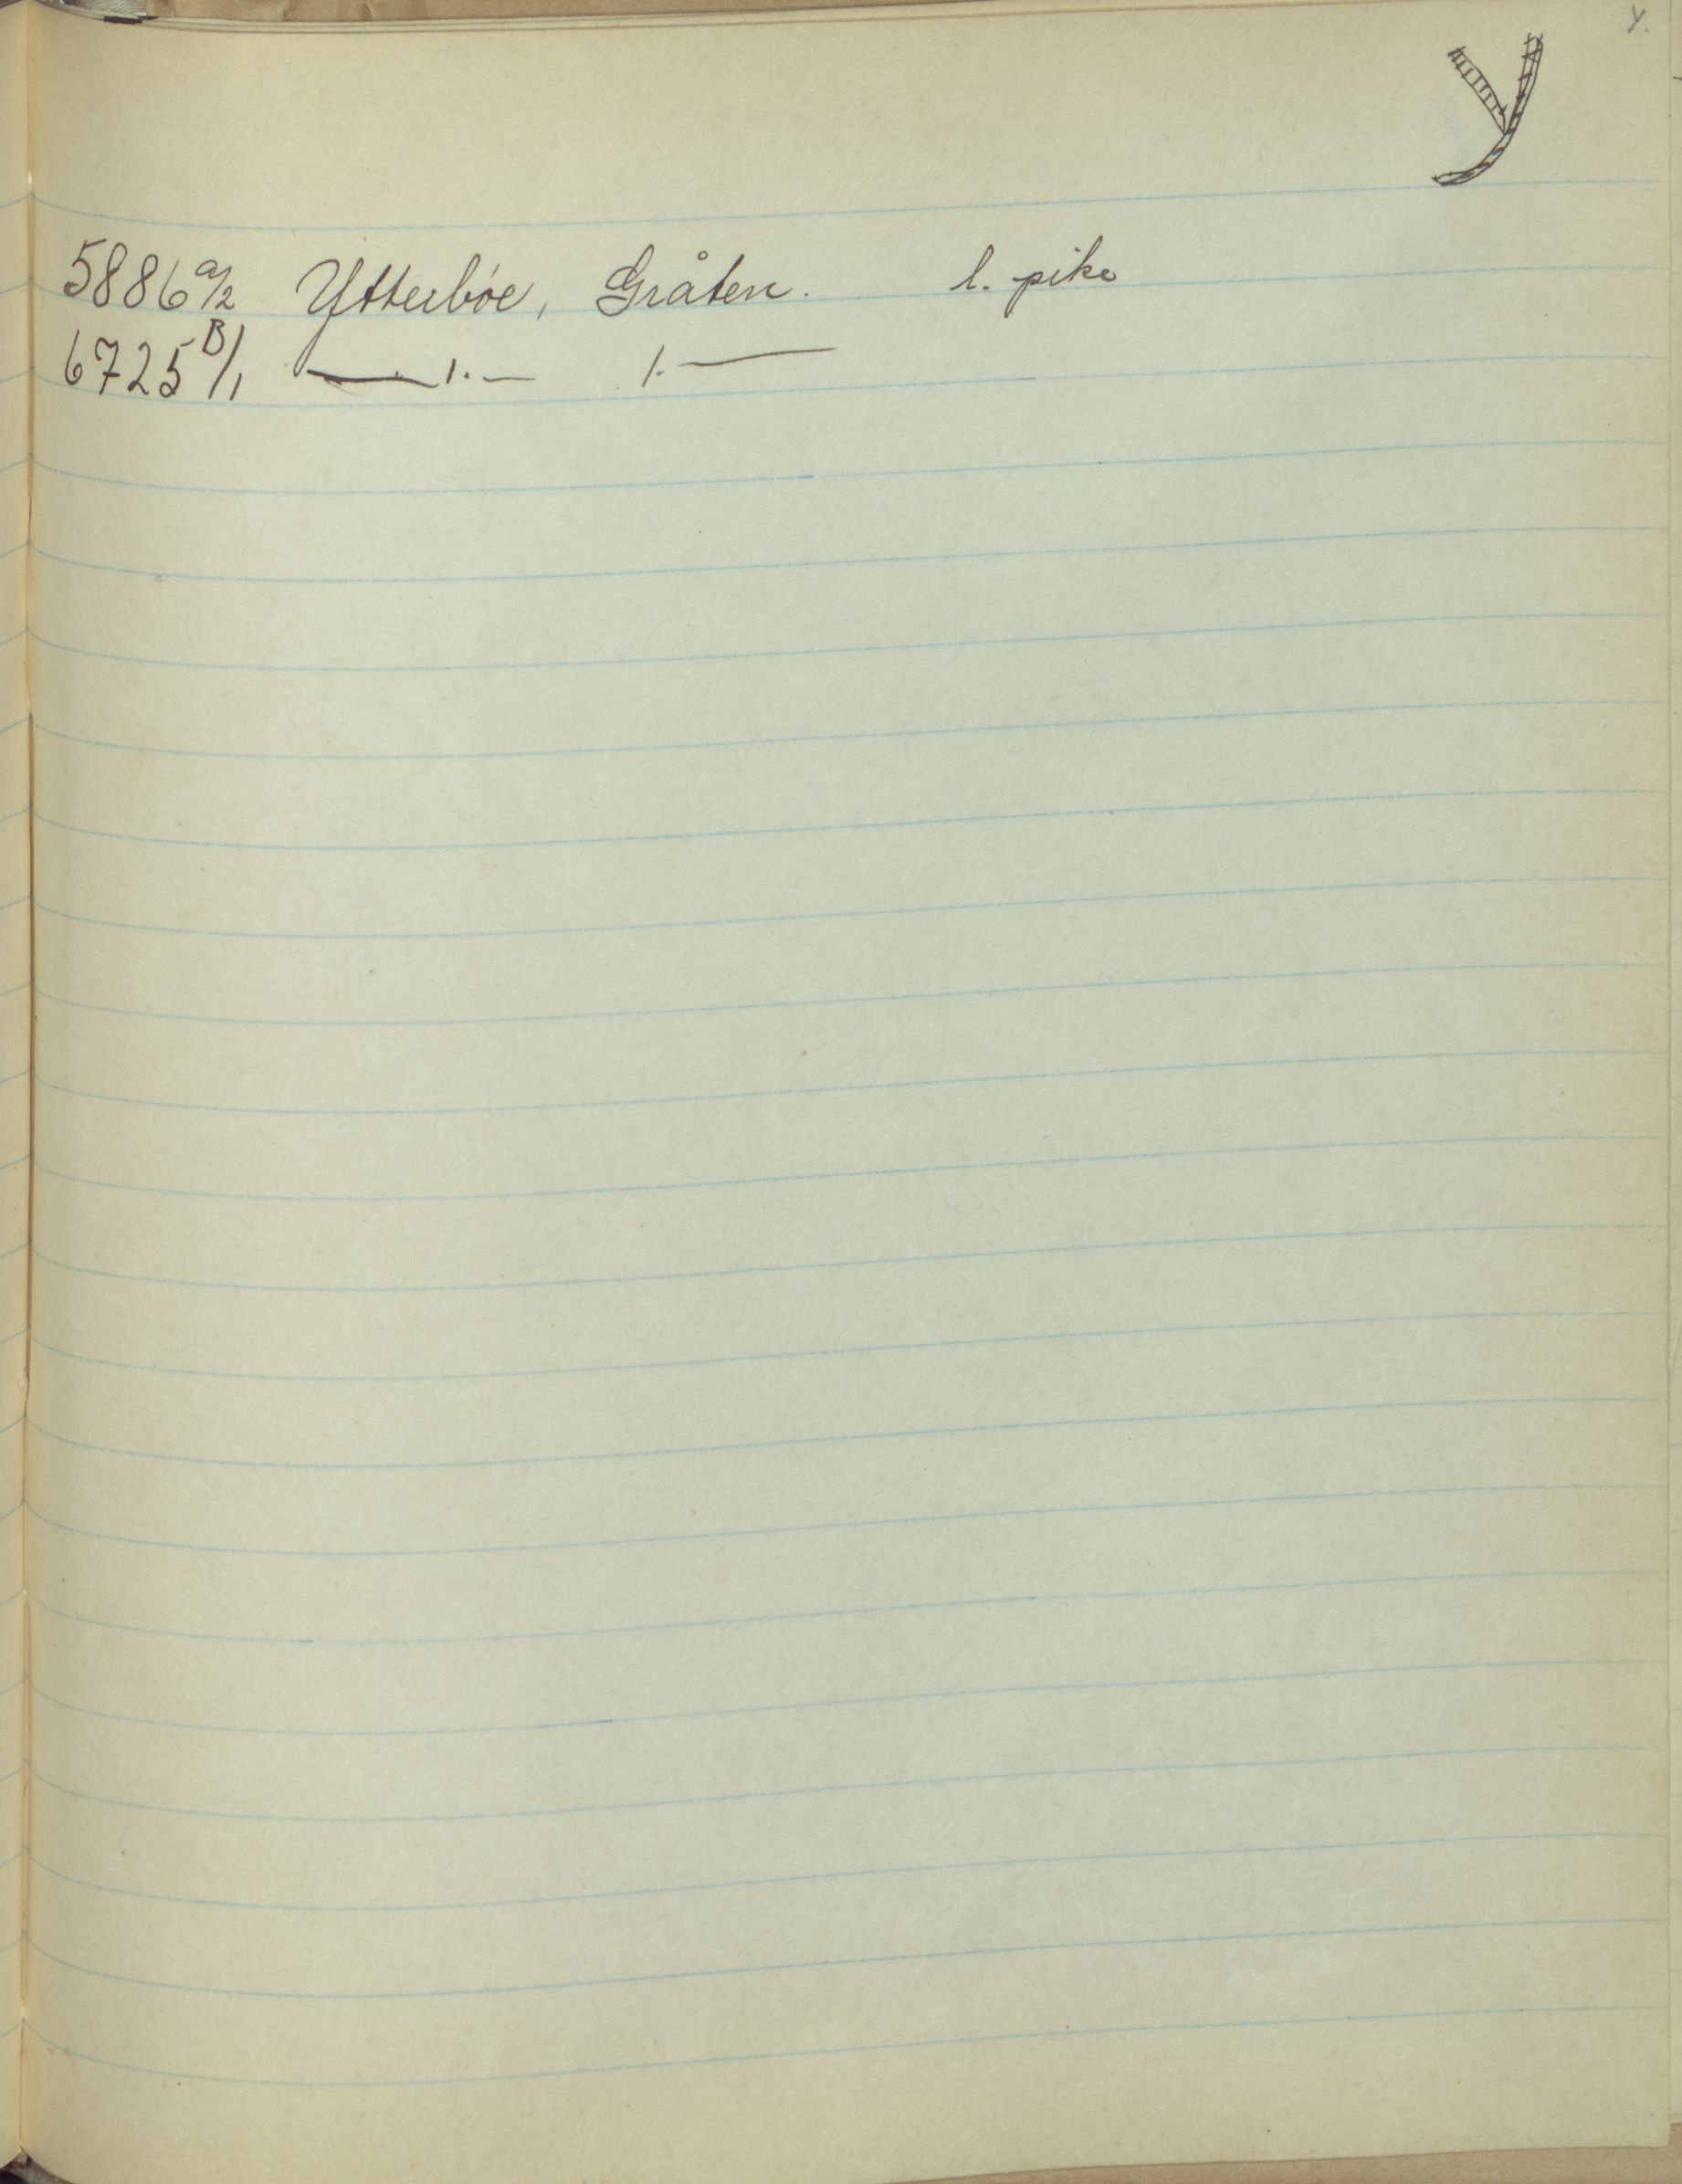 Y.
Y
5886 a/2 Ytterbóe, Gråten. l. pike
6725 B/1 —— 1. — 1. ——